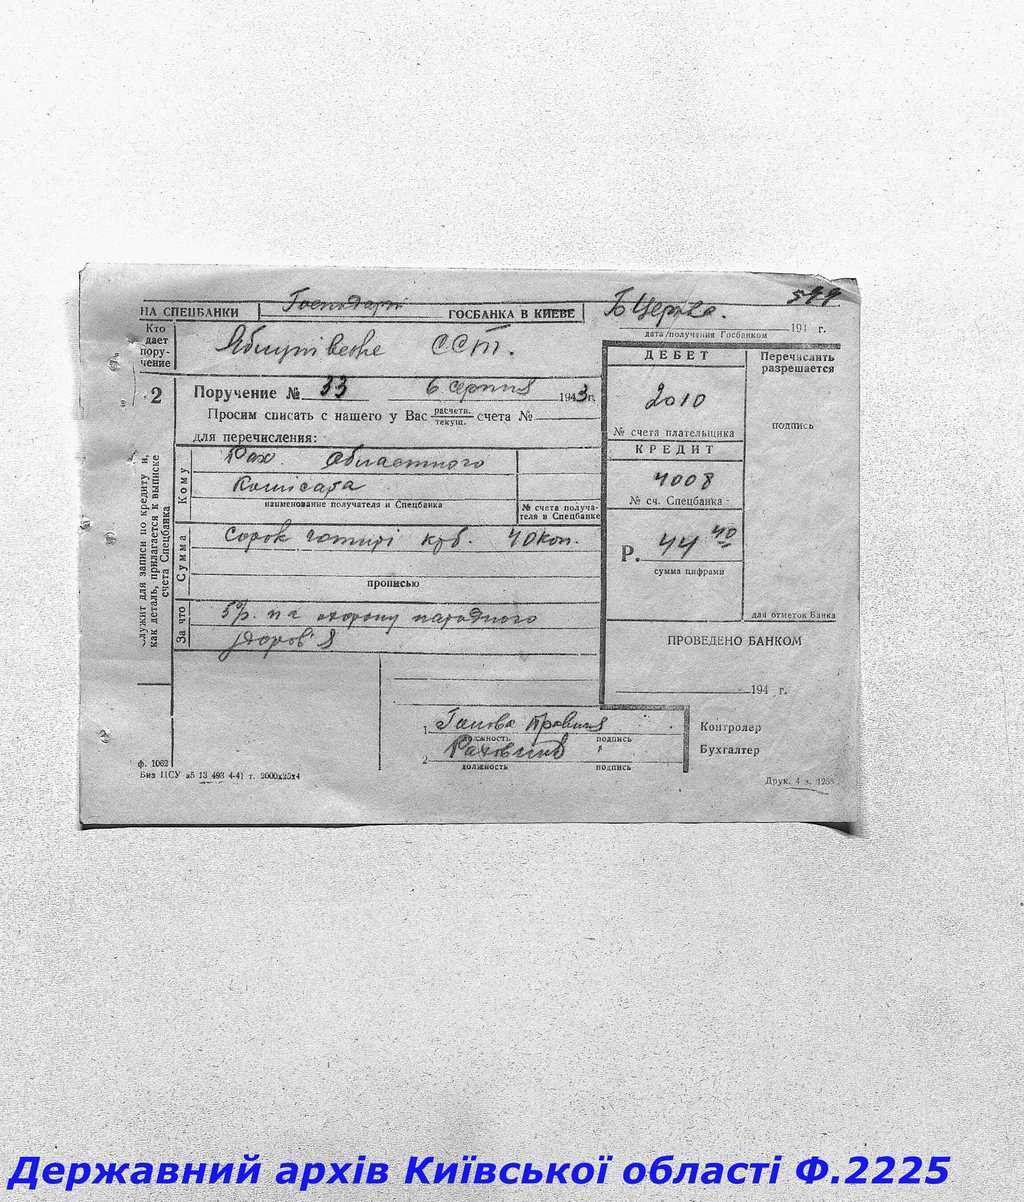 599
НА СПЕЦБАНКИ Господарч ГОСБАНКА В КИЕВЕ Б Церква.
194 г.
дата получения Госбанком
Кто дает поручение
Яблунівське ССТ.
2
Поручение № 33 6 серпня 1943г.
Просим списать с нашего у Вас расчетн. текущ. счета №
для перечисления:
Кому
Рах. Областного
Комісара
наименование получателя и Спецбанка
№ счета получателя в Спецбанке
Сумма
Сорок чотирі крб. 40 коп.
прописью
За что
5% на охорону народного
здоров'я
ДЕБЕТ
2010
№ счета плательщика
КРЕДИТ
4008
№ сч. Спецбанка
Р. 44 40
сумма цифрами
Перечислить разрешается
подпись
для отметок Банка
ПРОВЕДЕНО БАНКОМ
194 г.
служит для записи по кредиту и,
как деталь, прилагается к выписке
счета Спецбанка
1 Голова Правління
должность подпись
2 Рахівник
должность подпись
Контролер
Бухгалтер
ф. 1062
Биз ЦСУ 13 493 4-41 г. 2000х25х4
Друк. 4 з. 1258
Державний архів Київської області Ф.2225